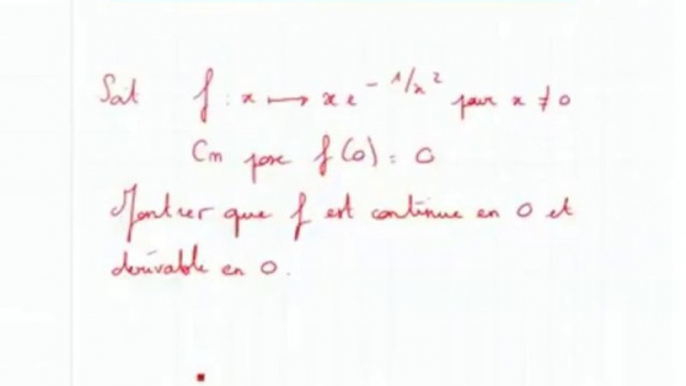 Soit f : x ⟼ x e^{-1/x^2} pour x ≠ 0
On pose f(0) = 0
Montrer que f est continue en 0 et
dérivable en 0.